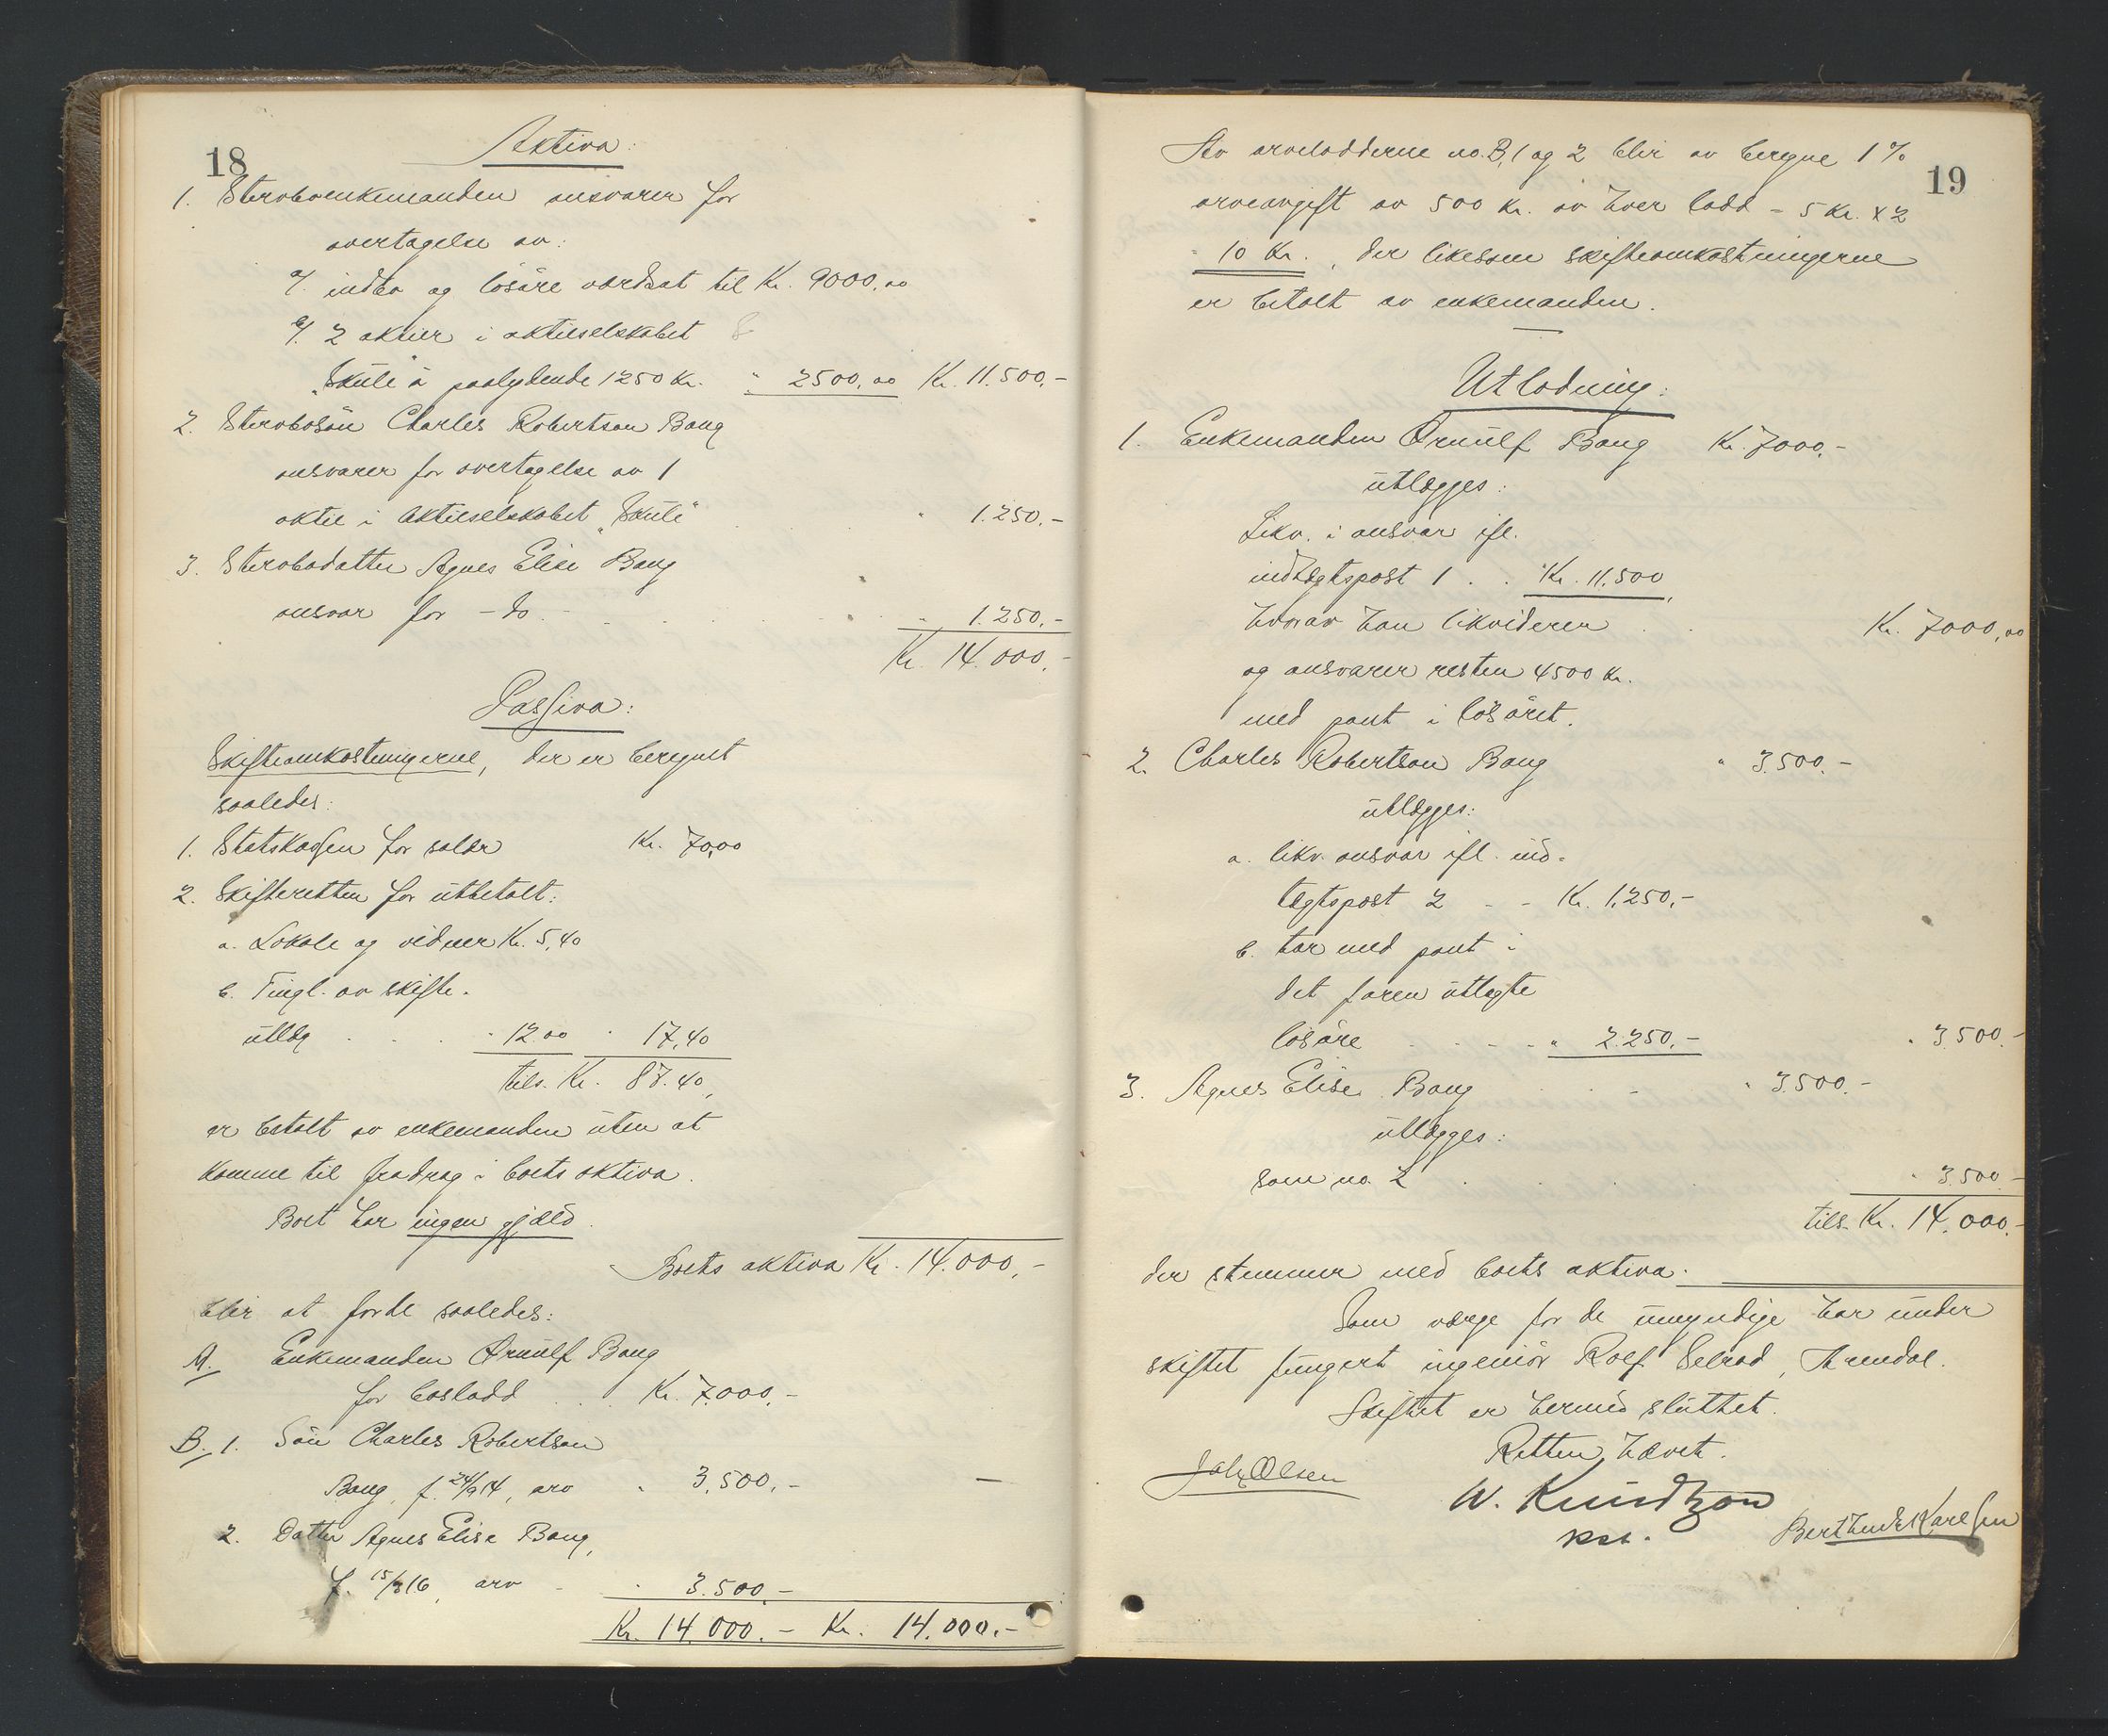 18
Aktiva:
1. Stervboenkemanden ansvarer for
overtagelse av:
a/. indbo og lösöre værdsat til Kr. 9000,00
b/. 2 aktier i aktieselskabet
"Skule" a paalydende 1250 Kr. " 2500,00 Kr. 11.500,-
2. Stervbosön Charles Robertson Bang
ansvarer for overtagelse av 1
aktie i Aktieselskabet "Skule" . . " 1.250,-
3. Stervbodatter Agnes Elise Bang
ansvar for - do - . . . . " 1.250,-
Kr. 14.000,-
Passiva:
Skifteomkostningerne, der er beregnet
saaledes:
1. Statskassen for salær Kr. 70,00
2. Skifteretten for utbetalt:
a. Lokale og vidner Kr. 5,40
b. Tingl. av skifte-
utlæg . . . " 12.00 " 17,40
tils. Kr. 87.40,
er betalt av enkemanden uten at
komme til fradrag i boets aktiva.
Boet har ingen gjæld.
Boets aktiva Kr. 14.000,-
blir at fordele saaledes:
A. Enkemanden Ørnulf Bang
for boslodd . . . Kr. 7.000,-
B. 1. Sön Charles Robertson
Bang, f. 24/9 14, arv " 3.500,- -
2. Datter Agnes Elise Bang,
f. 15/8 16, arv - " 3.500,-
Kr. 14.000.- Kr. 14.000.-
19
Av arvelodderne no. B, 1 og 2 blir av beregne 1 %
arveavgift av 500 Kr. av hver lodd = 5 Kr. x 2
10 Kr., der likesom skifteomkostningerne
er betalt av enkemanden.
Utlodning:
1. Enkemanden Ørnulf Bang Kr. 7000,-
utlægges:
Likv. i ansvar ifl.
indtægtspost 1 . . Kr. 11.500,
hvorav han likviderer . . Kr. 7000,00
og ansvarer resten 4500 Kr.
med pant i lösöret.
2. Charles Robertson Bang " 3.500.-
utlægges:
a. likv. ansvar ifl. ind-
tægtspost 2 - - Kr. 1.250,-
b. har med pant i
det faren utlagte
lösöre - - - - " 2.250,- " 3.500.-
3. Agnes Elise Bang . - " 3.500.-
utlægges:
som no. 2 . . . " 3.500.-
tils. Kr. 14.000.-
der stemmer med boets aktiva.
Som værge for de umyndige har under
skiftet fungert ingeniør Rolf Selrod, Arendal.
Skiftet er hermed sluttet.
Retten hævet.
Joh. Olsen
W. Knudtzon
kst.
Berthinds Karlsen